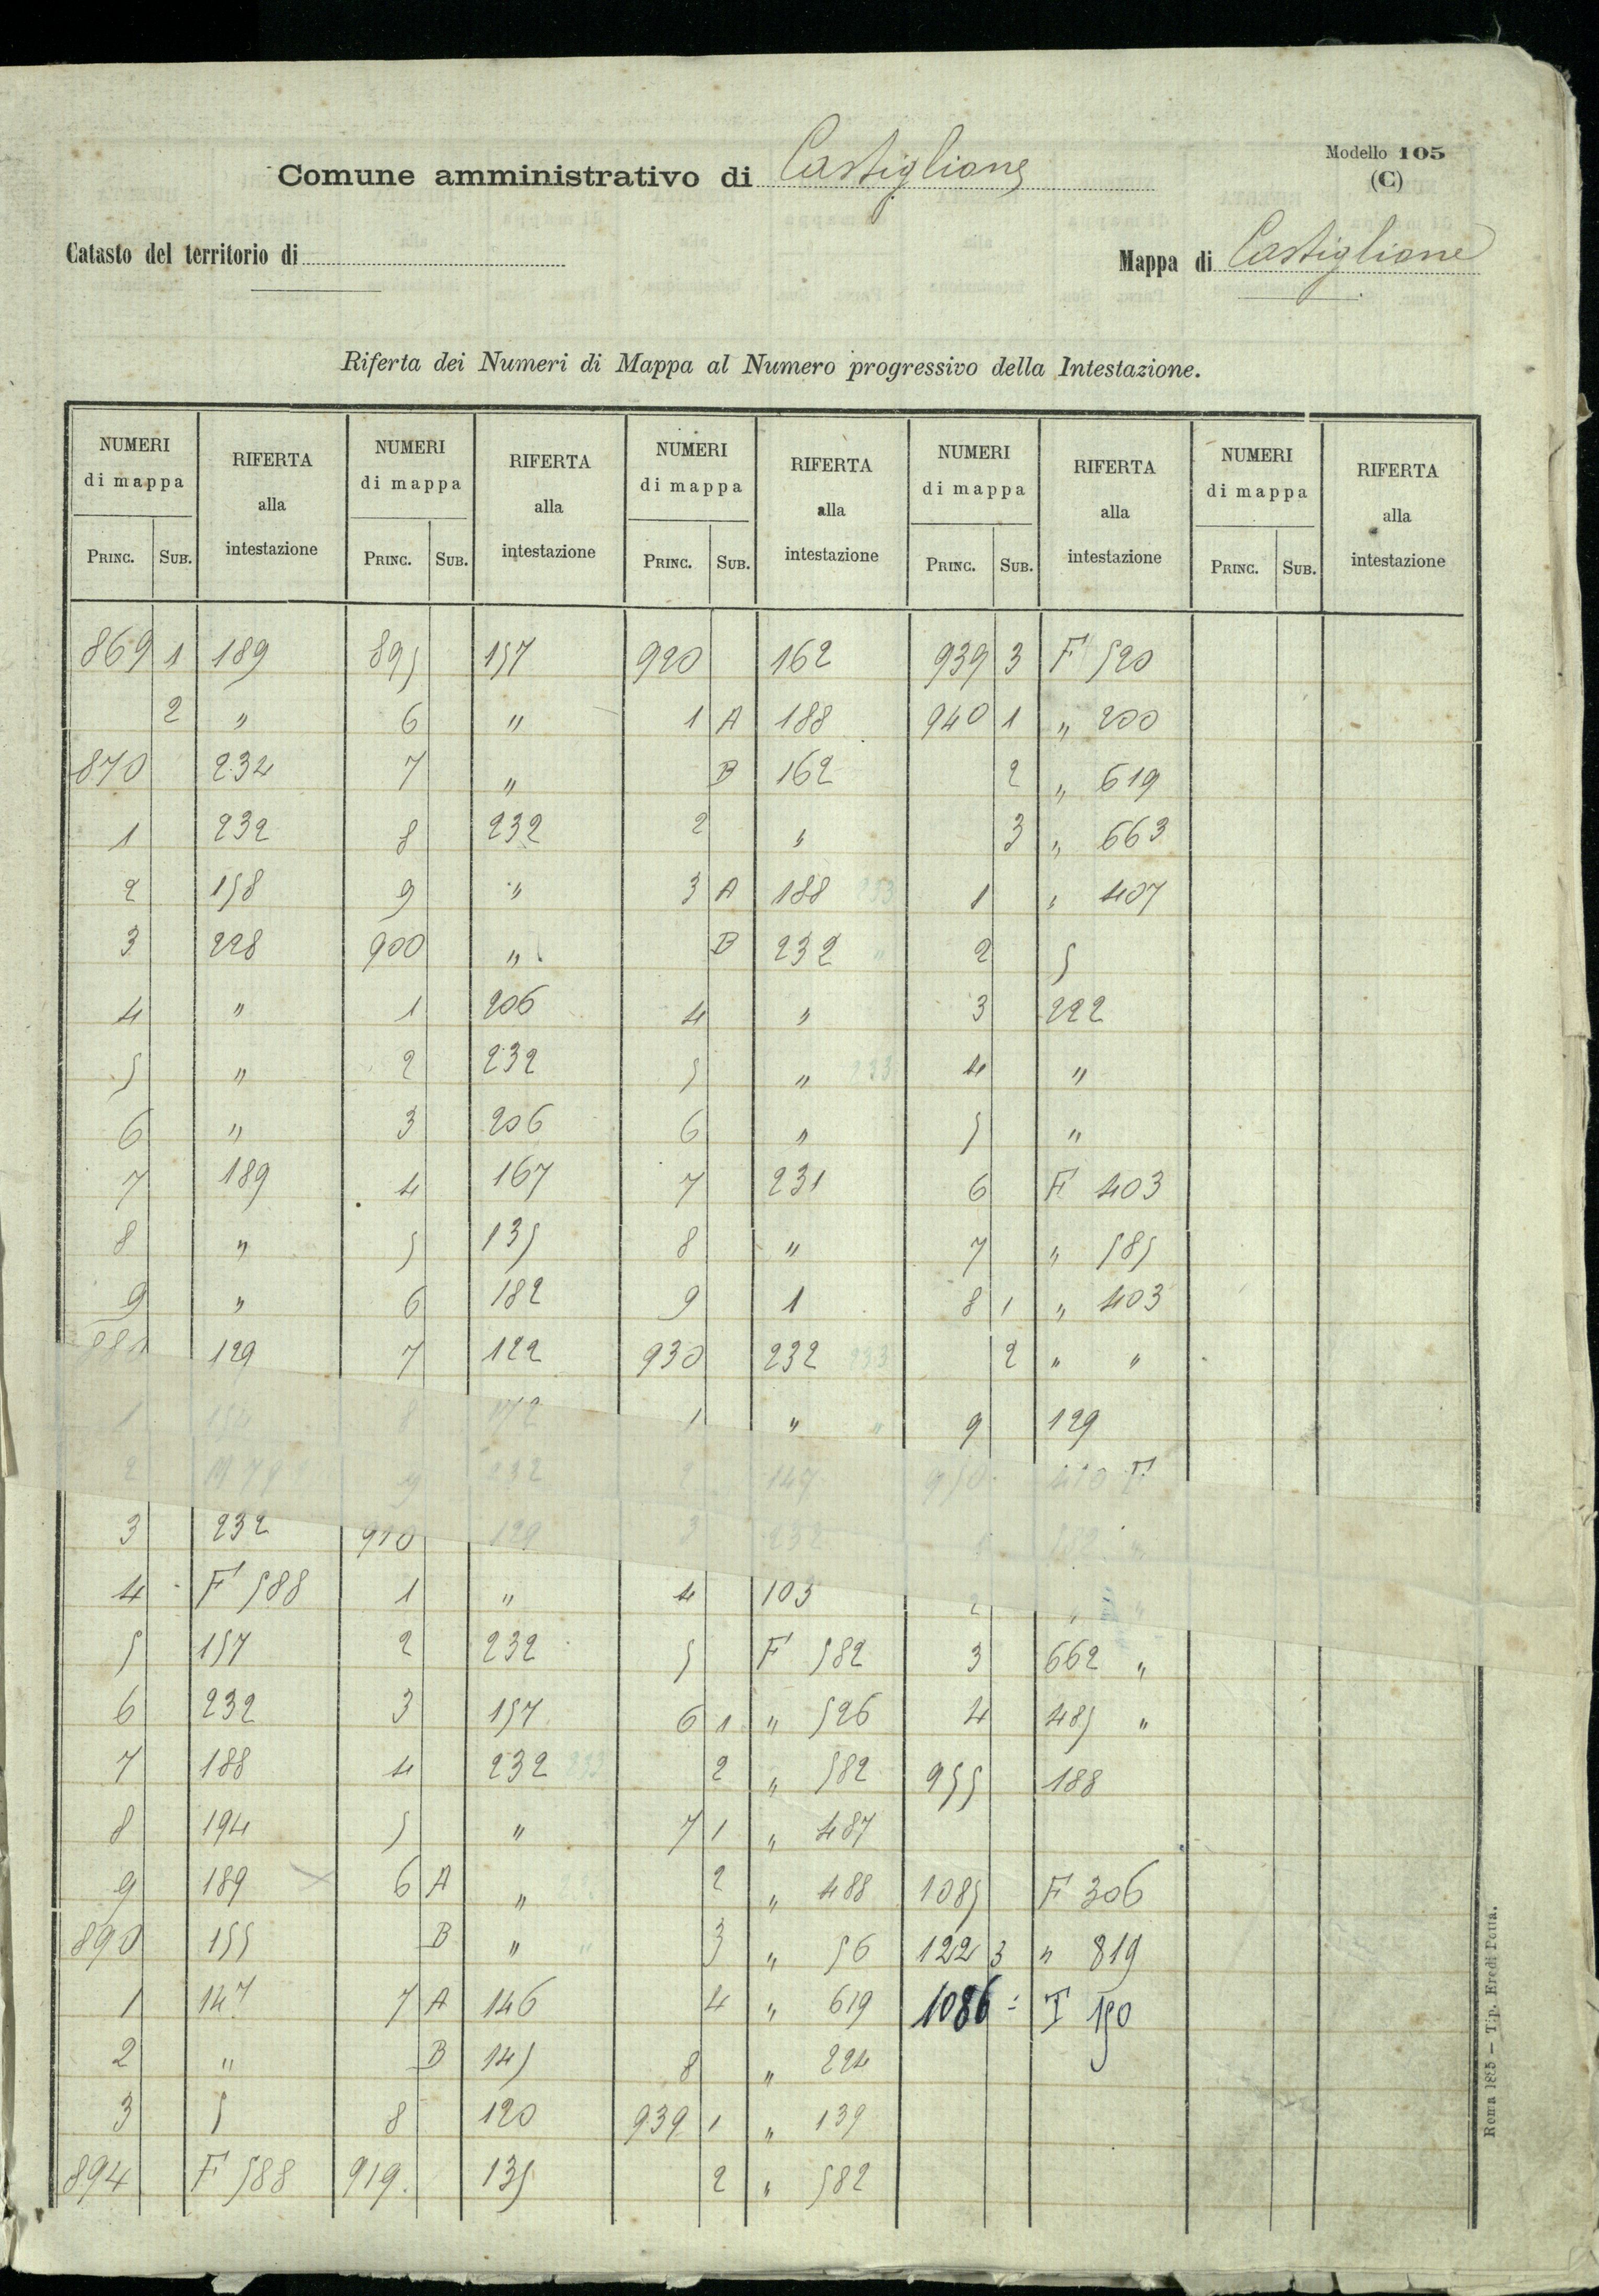 Modello 105
(C)
Comune amministrativo di Castiglione
Catasto del territorio di
Mappa di Castiglione
Riferta dei Numeri di Mappa al Numero progressivo della Intestazione.
NUMERI di mappa RIFERTA alla intestazione NUMERI di mappa RIFERTA alla intestazione NUMERI di mappa RIFERTA alla intestazione NUMERI di mappa RIFERTA alla intestazione NUMERI di mappa RIFERTA alla intestazione
PRINC. SUB. PRINC. SUB. PRINC. SUB. PRINC. SUB. PRINC. SUB.
869 1 189 895 157 920 162 939 3 F 520
2 " 6 " 1 A 188 940 1 " 200
870 234 7 " B 162 2 " 619
1 232 8 232 2 " 3 " 663
2 158 9 " 3 A 188 233 1 " 407
3 228 900 " B 232 " 2 5
4 " 1 206 4 " 3 222
5 " 2 232 5 " 233 4 "
6 " 3 206 6 " 5 "
7 189 4 167 7 231 6 F 403
8 " 5 135 8 " 7 " 585
9 " 6 182 9 1 8 1 " 403
880 129 7 122 930 232 233 2 " "
1 8 172 1 " " 9 129
2 9 232 2 147 950 410 F
3 232 910 129 3 232 "
4 F 588 1 " 4 103 2 " "
5 157 2 232 5 F 582 3 662 "
6 232 3 157 6 1 " 526 4 485 "
7 188 4 232 233 2 " 582 955 188
8 194 5 " 7 1 " 487
9 189 6 A " 2 " 488 1085 F 306
890 155 B " " 3 " 56 122 3 " 819
1 147 7 A 146 4 " 619 1086 = T 150
2 " B 145 8 " 224
3 5 8 120 939 1 " 139
894 F 588 919 135 2 " 582
Roma 1885 — Tip. Eredi Botta.